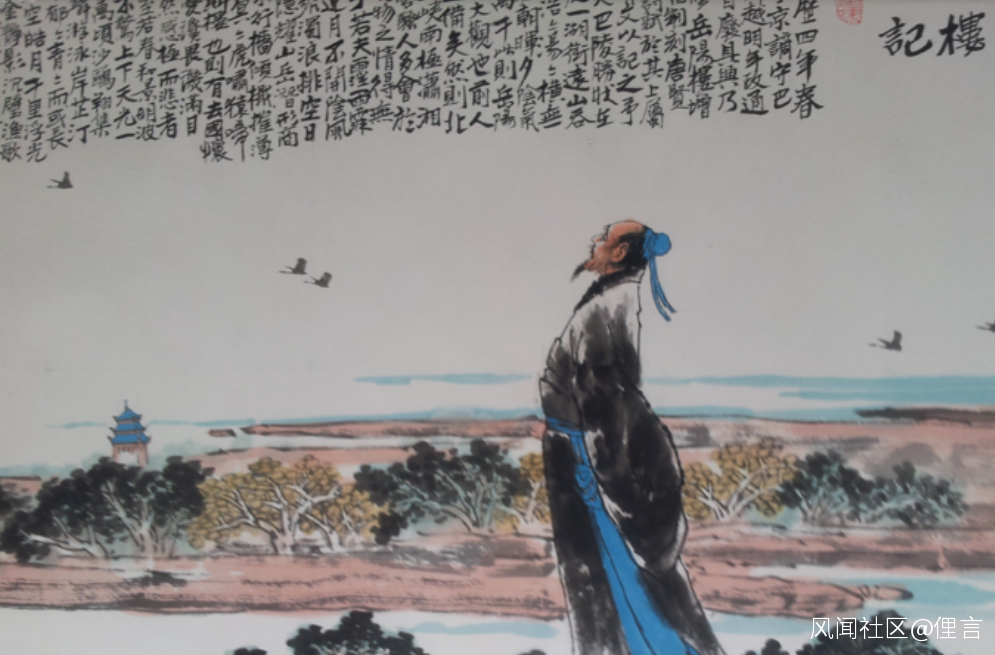 樓記
歷四年春
京謫守巴
越明年政通
百廢具興乃
修岳陽樓增
舊制刻唐賢
詩賦於其上屬
文以記之予
夫巴陵勝狀在
一湖銜遠山吞
浩々湯々橫無
朝暉夕陰氣
萬千此則岳陽
大觀也前人
備矣然則北
峽南極瀟湘
騷人多會於
物之情得無
若夫霪雨霏
連月不開陰風
號濁浪排空日
隱耀山岳潛形商
不行檣傾楫摧薄
冥々虎嘯猿啼
斯樓也則有去國懷
讒畏譏滿目
然感極而悲者
春和景明波
不驚上下天光一
萬頃沙鷗翔集
游泳岸芷汀
郁々青々而或長
空皓月千里浮光
金靜影沉璧漁歌
风闻社区@俚言